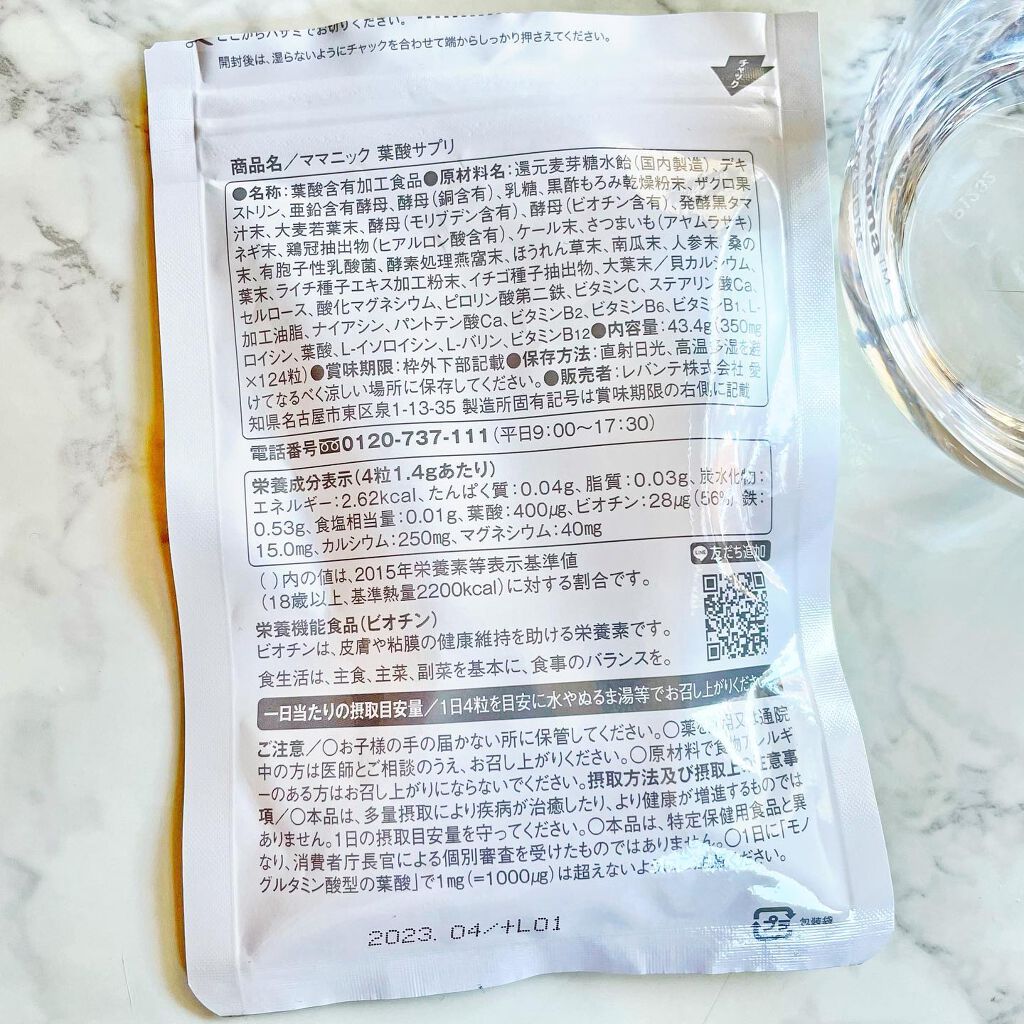 ここからハサミでお切りください。
開封後は、湿らないようにチャックを合わせて端からしっかり押さえてください。
チャック
商品名／ママニック 葉酸サプリ
●名称：葉酸含有加工食品●原材料名：還元麦芽糖水飴（国内製造）、デキ
ストリン、亜鉛含有酵母、酵母（銅含有）、乳糖、黒酢もろみ乾燥粉末、ザクロ果
汁末、大麦若葉末、酵母（モリブデン含有）、酵母（ビオチン含有）、発酵黒タマ
ネギ末、鶏冠抽出物（ヒアルロン酸含有）、ケール末、さつまいも（アヤムラサキ）
末、有胞子性乳酸菌、酵素処理燕窩末、ほうれん草末、南瓜末、人参末、桑の
葉末、ライチ種子エキス加工粉末、イチゴ種子抽出物、大葉末／貝カルシウム、
セルロース、酸化マグネシウム、ピロリン酸第二鉄、ビタミンC、ステアリン酸Ca、
加工油脂、ナイアシン、パントテン酸Ca、ビタミンB2、ビタミンB6、ビタミンB1、L-
ロイシン、葉酸、L-イソロイシン、L-バリン、ビタミンB12●内容量：43.4g（350mg
×124粒）●賞味期限：枠外下部記載●保存方法：直射日光、高温多湿を避
けてなるべく涼しい場所に保存してください。●販売者：レバンテ株式会社 愛
知県名古屋市東区泉1-13-35 製造所固有記号は賞味期限の右側に記載
電話番号0120-737-111（平日9:00〜17:30）
栄養成分表示（4粒1.4gあたり）
エネルギー：2.62kcal、たんぱく質：0.04g、脂質：0.03g、炭水化物：
0.53g、食塩相当量：0.01g、葉酸：400μg、ビオチン：28μg（56%）、鉄：
15.0mg、カルシウム：250mg、マグネシウム：40mg
LINE 友だち追加
（ ）内の値は、2015年栄養素等表示基準値
（18歳以上、基準熱量2200kcal）に対する割合です。
栄養機能食品（ビオチン）
ビオチンは、皮膚や粘膜の健康維持を助ける栄養素です。
食生活は、主食、主菜、副菜を基本に、食事のバランスを。
一日当たりの摂取目安量／1日4粒を目安に水やぬるま湯等でお召し上がりください
ご注意／○お子様の手の届かない所に保管してください。○薬を 用又は通院
中の方は医師とご相談のうえ、お召し上がりください。○原材料で食物アレルギ
ーのある方はお召し上がりにならないでください。摂取方法及び摂取上の注意事
項／○本品は、多量摂取により疾病が治癒したり、より健康が増進するものでは
ありません。1日の摂取目安量を守ってください。○本品は、特定保健用食品と異
なり、消費者庁長官による個別審査を受けたものではありません。○1日に「モノ
グルタミン酸型の葉酸」で1mg（=1000μg）は超えないように ください。
2023. 04/+L01
プラ 包装袋